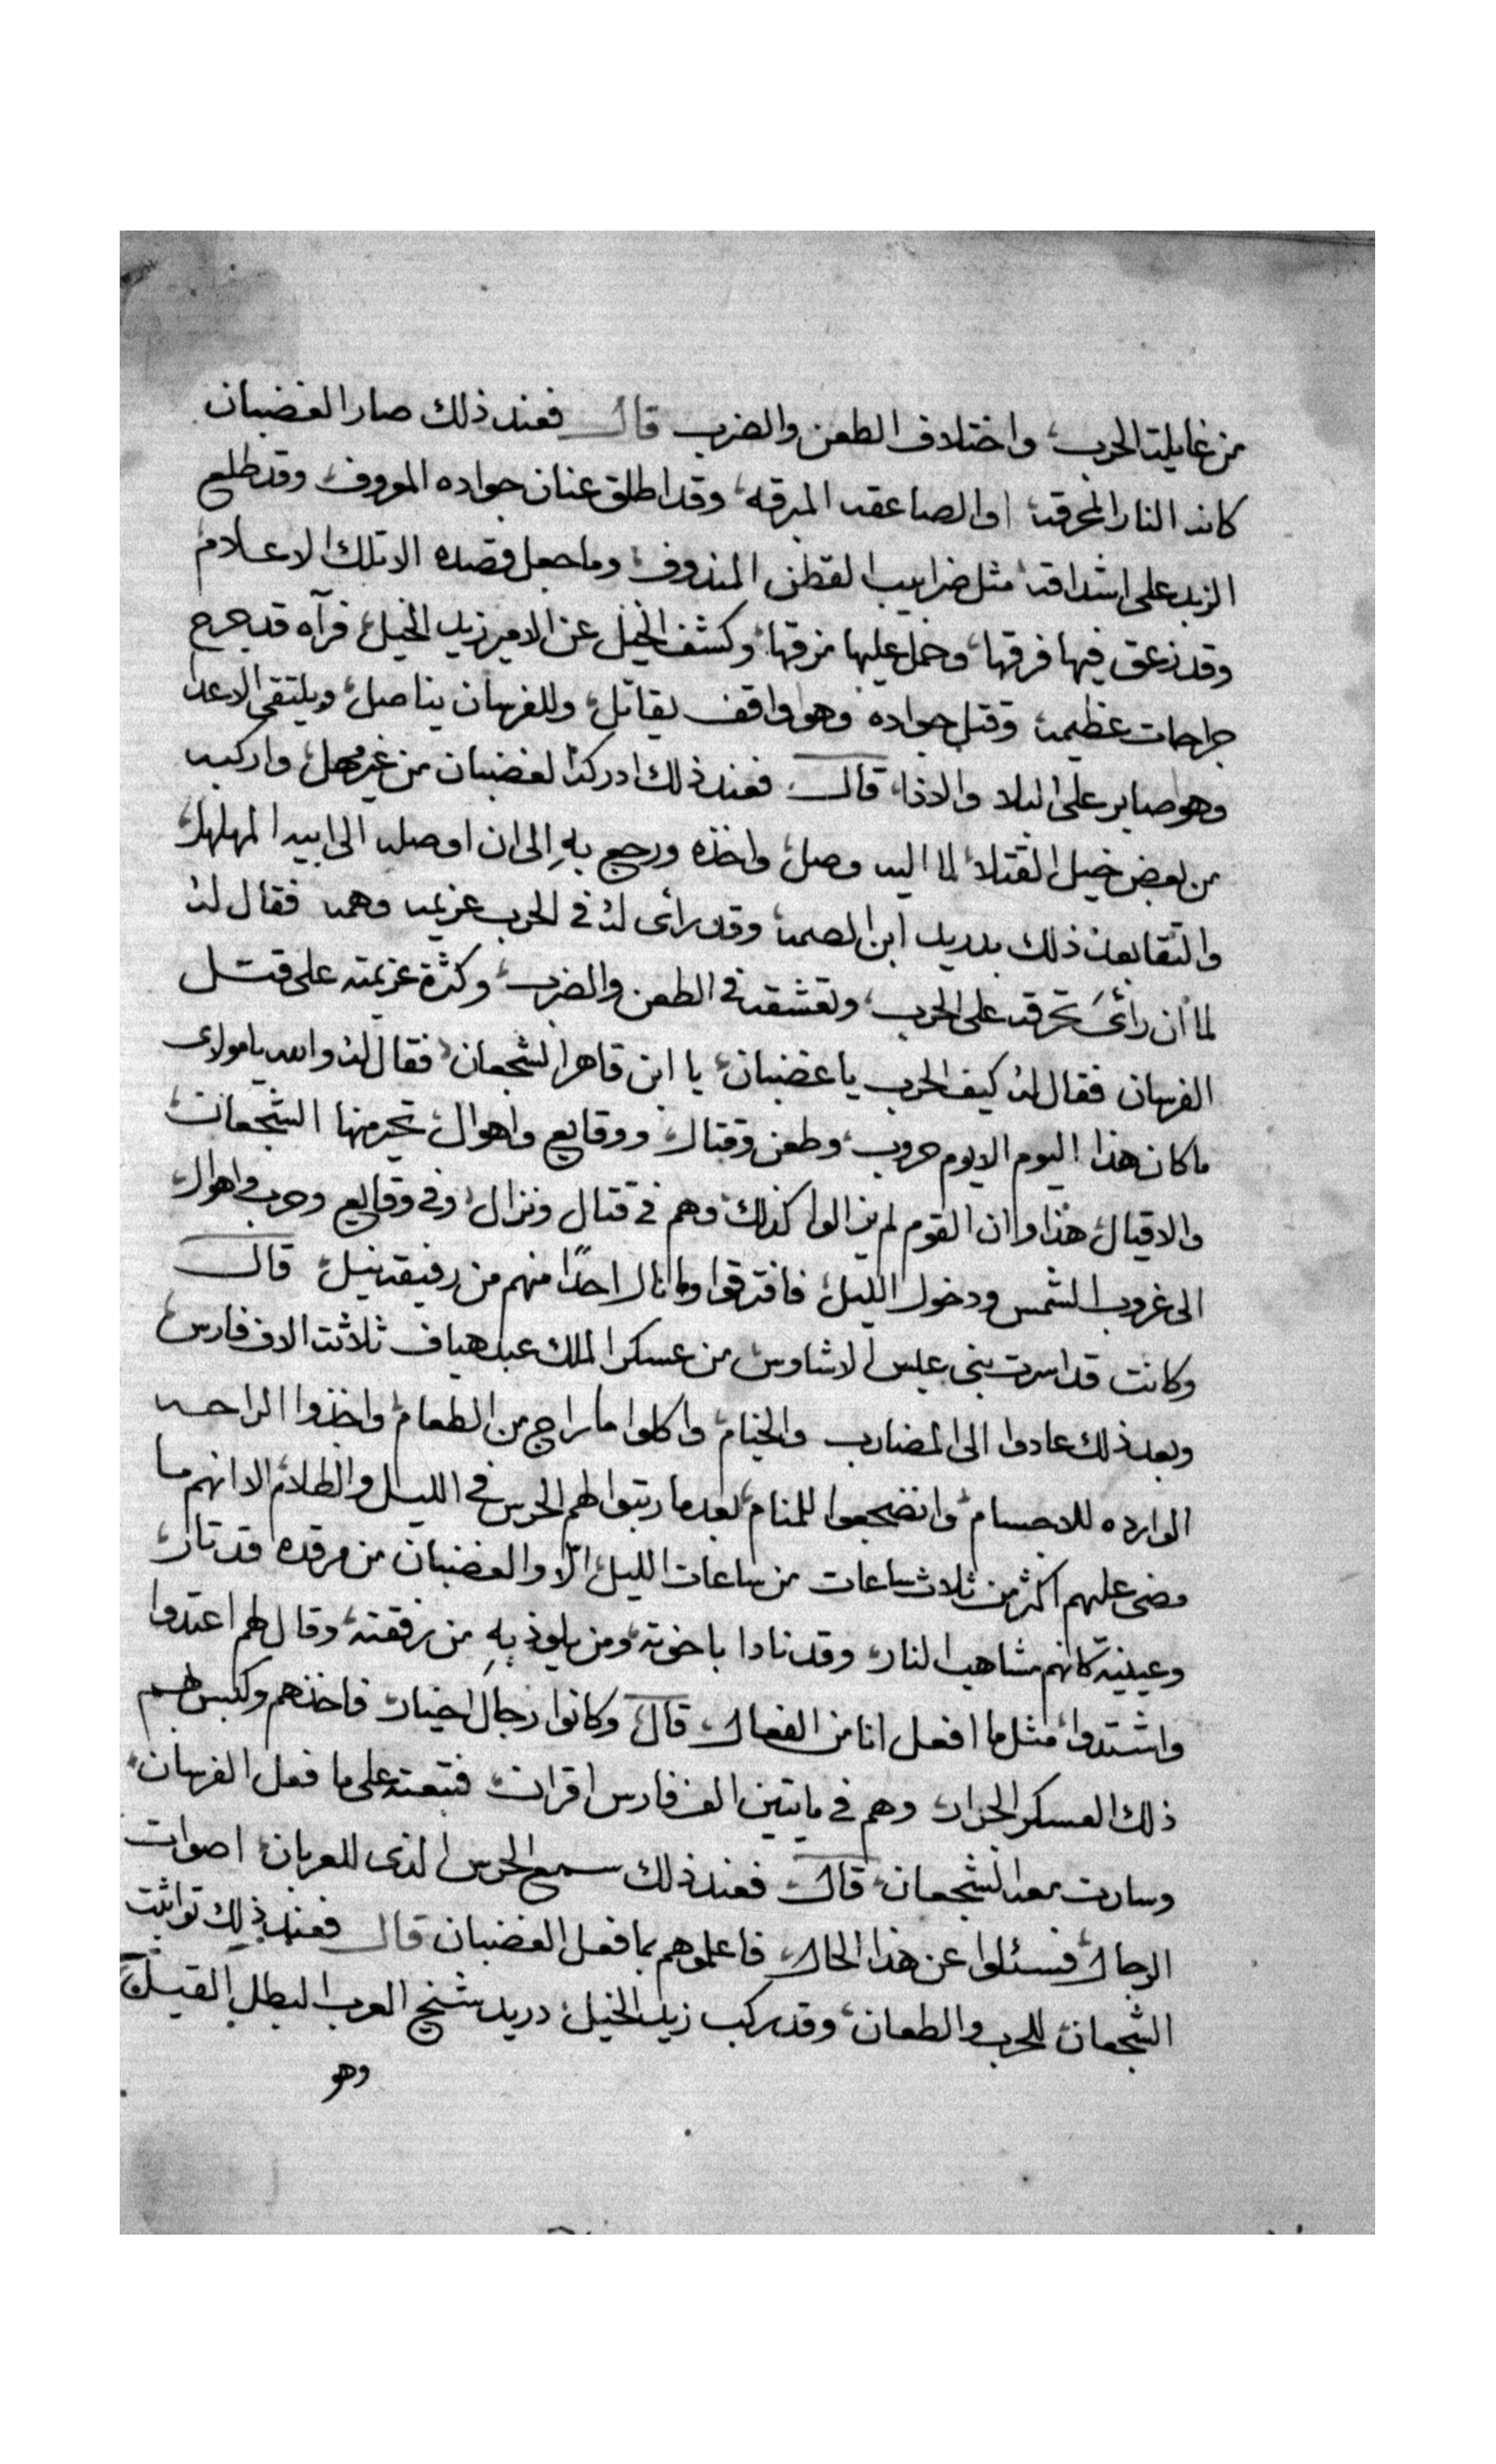 من غايلة الحرب، واختلاف الطعن والضرب قال فعند ذلك صار الغضبان
كانه النار المحرقه، او الصاعقه المبرقه، وقد اطلق عنان جواده الموروف، وقد طلع
الزبد على اشداقه، مثل ضرايب القطن المندوف، وما جعل قصده الا تلك الاعلام
وقد زعق فيها فرقها، وحمل عليها مزقها، وكشف الخيل عن الامير زيد الخيل، فرآه قد جرح
جراحات عظيمه، وقتل جواده وهو واقف يقاتل، وللفرسان يناصل، ويلتقى الاعدا
وهو صابر على البلا والاذا، قال فعند ذلك ادركه الغضبان من غير مهل، واركبه
من بعض خيل القتلا، لما اليه وصل، واخذه ورجع بهِ الى ان اوصله الى ابيه المهلهل،
والتقا بعد ذلك بدريد ابن الصمه، وقد رأى لهُ فى الحرب عزيمه وهمه فقال لهُ
لما أن رأىَ تحرقه على الحرب، وتعشقه فى الطعن والضرب، وكثرة عزيمته على قتل
الفرسان فقال لهُ كيف الحرب يا غضبان، يا ابن قاهر الشجعان، فقال لهُ والله يا مولاى
ما كان هذا اليوم الا يوم حروب، وطعن وقتال، ووقايع واهوال، تحير منها الشجعان،
والاقيال، هذا وان القوم لم يزالوا كذلك، وهم فى قتال ونزال، وفى وقايع وحرب واهوال،
الى غروب الشمس ودخول الليل، فافترقوا وما نال احدًا منهم من رفيقه نيل، قال
وكانت قد اسرت بنى عبس الاشاوس، من عسكر الملك عبد هياف ثلاثت الاف فارس،
وبعد ذلك عادوا الى المضارب والخيام، واكلوا ما راج من الطعام، واخذوا الراحه
الوارده للاجسام، وانضجعوا للمنام، بعد ما رتبوا لهم الحرس فى الليل والظلام، الا انهم ما
مضى عليهم اكثر من ثلاث ساعات من ساعات الليل، الّا والغضبان من مرقده قد تار،
وعينيه كانهم مشاهيب النار، وقد نادا باخوته، ومن يلوذ بهِ من رفقته، وقال لهم اعتدوا
واشتدوا، مثل ما افعل انا من الفعال، قال وكانوا رجال اخيار، فاخذهم وكبس بهم
ذلك العسكر الجرار، وهم فى مايتين الف فارس اقران، فتبعته على ما فعل الفرسان،
وسارت معه الشجعان، قال فعند ذلك سمع الحرس الذى للعربان، اصوات
الرجال، فسئلوا عن هذا الحال، فاعلموهم بما فعل الغضبان قال فعند ذلك تواثبت
الشجعان، للحرب والطعان، وقد ركب زيد الخيل، دريد شيخ العرب البطل القيل،
وهو